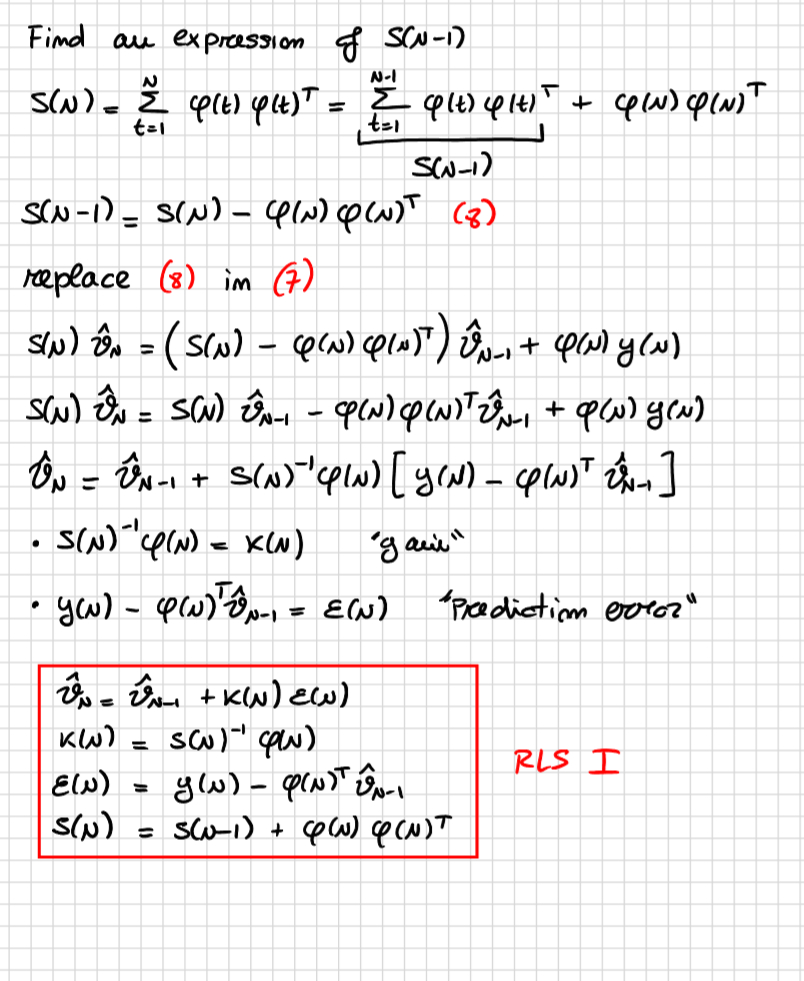 Find an expression of S(N-1)
S(N) = Σ_{t=1}^{N} φ(t) φ(t)ᵀ = Σ_{t=1}^{N-1} φ(t) φ(t)ᵀ + φ(N) φ(N)ᵀ
S(N-1)
S(N-1) = S(N) - φ(N) φ(N)ᵀ (8)
replace (8) in (7)
S(N) ϑ̂_N = (S(N) - φ(N) φ(N)ᵀ) ϑ̂_{N-1} + φ(N) y(N)
S(N) ϑ̂_N = S(N) ϑ̂_{N-1} - φ(N) φ(N)ᵀ ϑ̂_{N-1} + φ(N) y(N)
ϑ̂_N = ϑ̂_{N-1} + S(N)⁻¹ φ(N) [ y(N) - φ(N)ᵀ ϑ̂_{N-1} ]
• S(N)⁻¹ φ(N) = K(N) "gain"
• y(N) - φ(N)ᵀ ϑ̂_{N-1} = ε(N) "Prediction error"
ϑ̂_N = ϑ̂_{N-1} + K(N) ε(N)
K(N) = S(N)⁻¹ φ(N)
ε(N) = y(N) - φ(N)ᵀ ϑ̂_{N-1}
S(N) = S(N-1) + φ(N) φ(N)ᵀ
RLS I